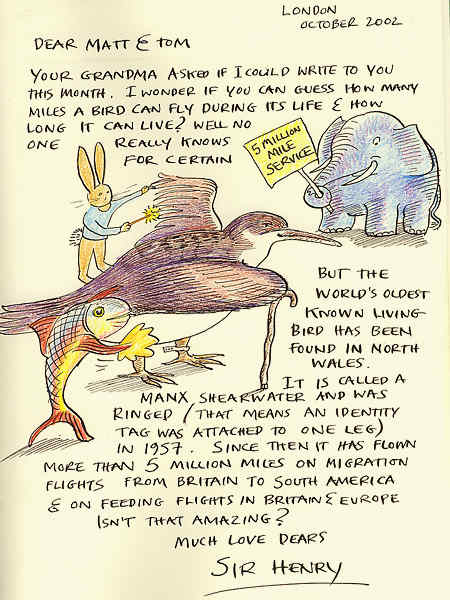 LONDON
OCTOBER 2002
DEAR MATT & TOM
YOUR GRANDMA ASKED IF I COULD WRITE TO YOU
THIS MONTH. I WONDER IF YOU CAN GUESS HOW MANY
MILES A BIRD CAN FLY DURING ITS LIFE & HOW
LONG IT CAN LIVE? WELL NO
ONE REALLY KNOWS
FOR CERTAIN
5 MILLION
MILE
SERVICE
BUT THE
WORLD'S OLDEST
KNOWN LIVING
BIRD HAS BEEN
FOUND IN NORTH
WALES.
IT IS CALLED A
MANX SHEARWATER AND WAS
RINGED (THAT MEANS AN IDENTITY
TAG WAS ATTACHED TO ONE LEG)
IN 1957. SINCE THEN IT HAS FLOWN
MORE THAN 5 MILLION MILES ON MIGRATION
FLIGHTS FROM BRITAIN TO SOUTH AMERICA
& ON FEEDING FLIGHTS IN BRITAIN & EUROPE
ISN'T THAT AMAZING?
MUCH LOVE DEARS
SIR HENRY